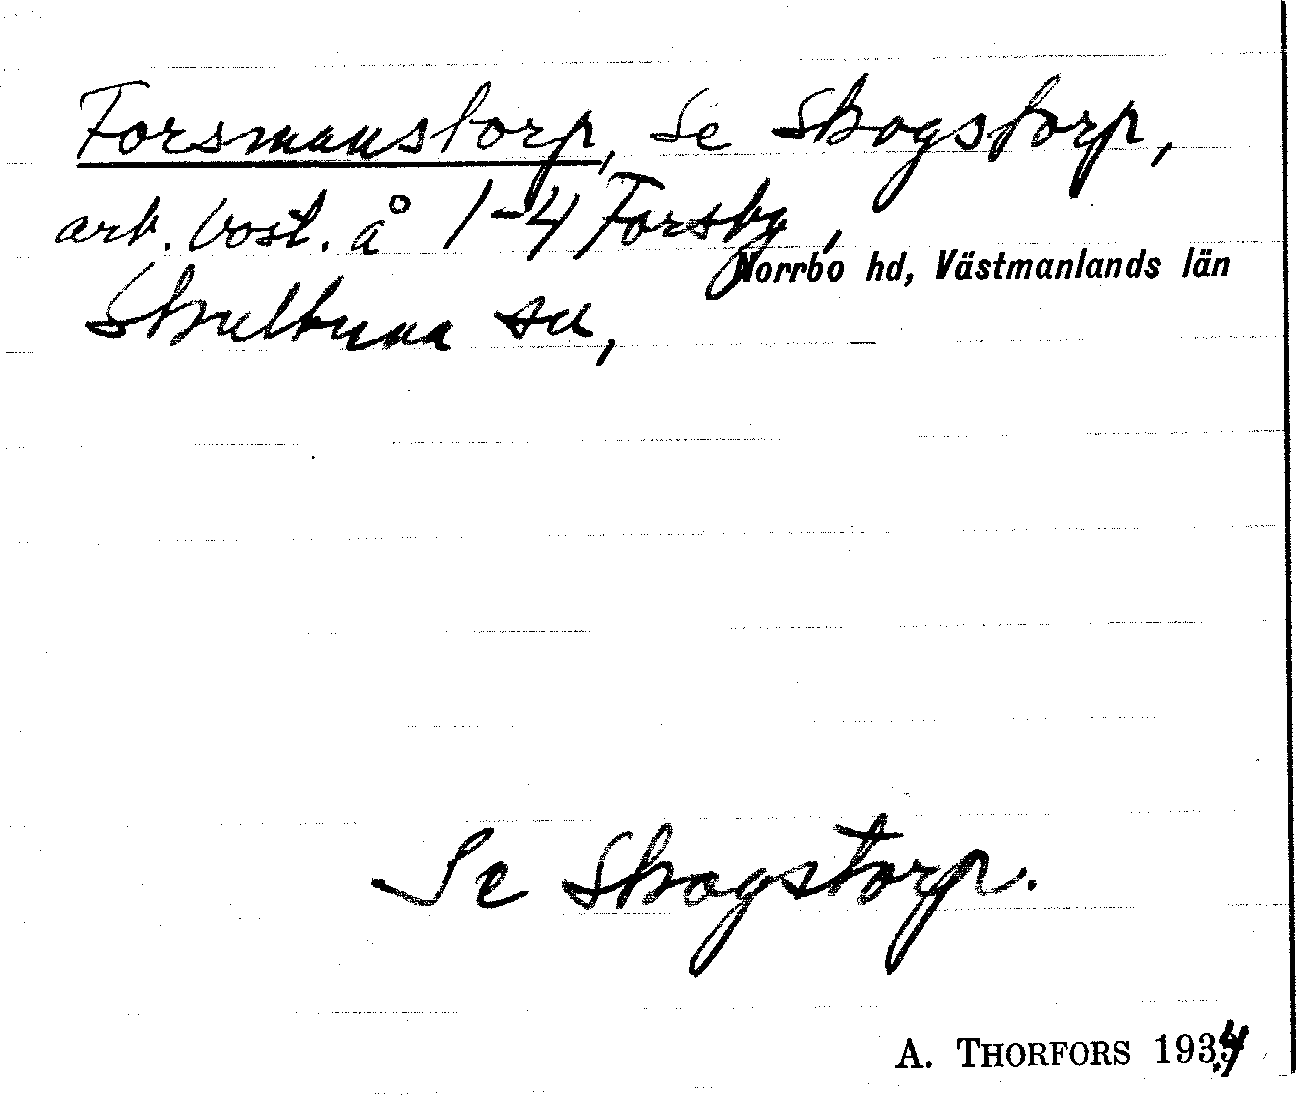 Forsmanstorp, Se Skogstorp,
arb. bost. å 1-4 Forsby,
Norrbo hd, Västmanlands län
Skultuna sn,
Se Skogstorp.
A. THORFORS 1934